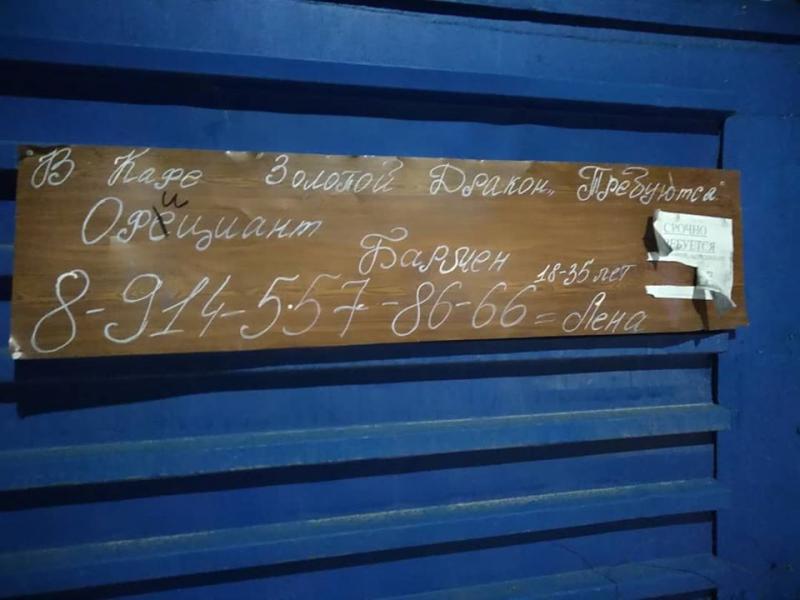 "В Кафе "Золотой Дракон„ Требуются"
Официант
Бармен
18-35 лет
8-914-557-86-66 = Лена
СРОЧНО